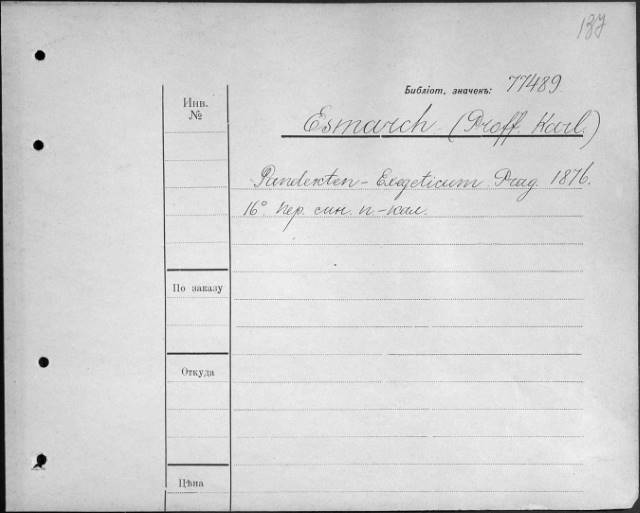 137
Библіот. значекъ: 77489
Инв.
№
Esmarch (Proff. Karl.)
Pandekten-Exegeticum. Prag. 1876.
16° пер. син. п.-кал.
По заказу
Откуда
Цѣна